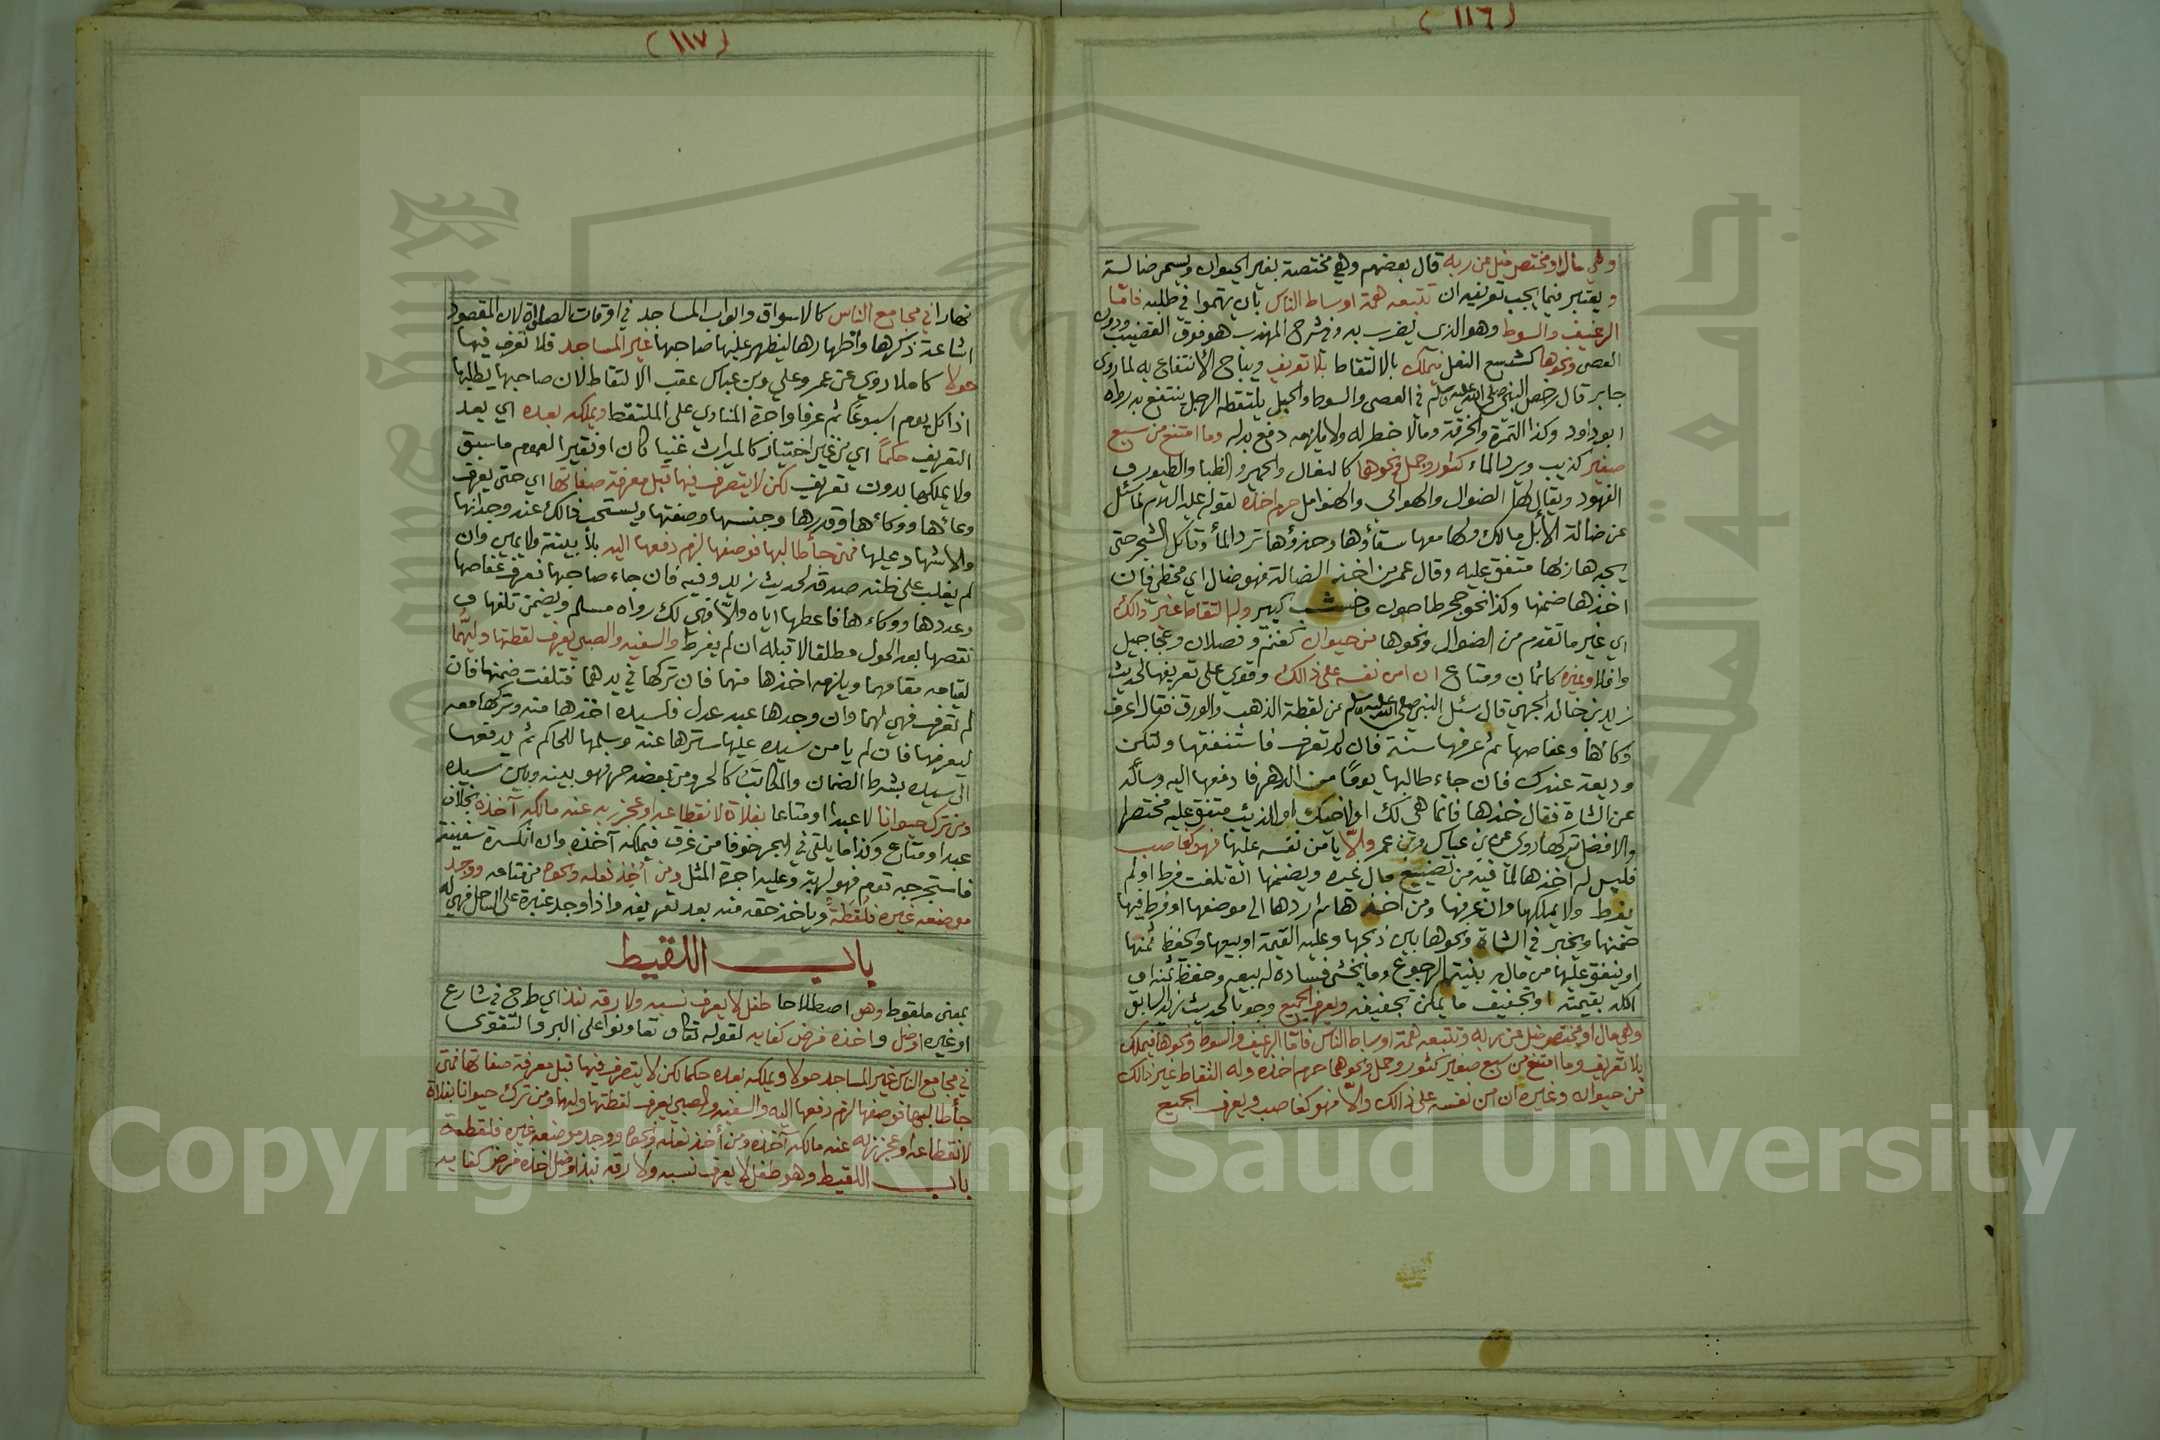 (١١٦)
وهي مال او مختص ضل عن ربه قال بعضهم وهي مختصة بغير الحيوان ويسمى ضالة
و يعتبر فيما يجب تعريفه ان تتبعه همة اوساط الناس بان يهتموا في طلبه فاما
الرغيف والسوط وهو الذي يضرب به وفي شرح المهذب هو فوق القضيب ودون
العصى ونحوها كشسع النعل فيملك بالالتقاط بلا تعريف ويباح الانتفاع به لما روى
جابر قال رخص النبي صلى الله عليه وسلم في العصى والسوط والحبل يلتقطه الرجل ينتفع به رواه
ابو داود وكذا التمرة والخرقة ومالا خطر له ولا يلزمه دفع بدله وما امتنع من سبع
صغير كذيب ويرد الماء كثور وجمل ونحوهما كالبغال والحمير والظبا والطيور و
الفهود ويقال لها الضوال والهوامي والهوامل حرم اخذه لقوله عليه السلام لما سئل
عن ضالة الابل مالك ولها معها سقاؤها وحذؤها ترد الماء وتاكل الشجر حتى
يجدها ربها متفق عليه وقال عمر من اخذ الضالة فهو ضال اي مخطي فان
اخذها ضمنها وكذا نحو حجر طاحون وخشب كبير وله التقاط غير ذالك
اي غير ما تقدم من الضوال ونحوها من حيوان كغنم وفصلان وعجاجيل
وافلا وغيره كاثمان ومتاع ان امن نفسه على ذالك وقوي على تعريفها لحديث
زيد بن خالد الجهني قال سئل النبي صلى الله عليه وسلم عن لقطة الذهب والورق فقال اعرف
وكائها وعفاصها ثم عرفها سنة فان لم تعرف فاستنفقها ولتكن
وديعة عندك فان جاء طالبها يومًا من الدهر فادفعها اليه وسأله
عن الشاة فقال خذها فانما هي لك او لاخيك او للذيب متفق عليه مختصرا
والافضل تركها روى عن بن عباس وبن عمر والّا يامن نفسه عليها فهو كغاصب
فليس له اخذها لما فيه من تضييع مال غيره ويضمنها ان تلفت فرط او لم
يفرط ولا يملكها وان عرفها ومن اخذها ثم ردها الى موضعها او فرط فيها
ضمنها ويخير في الشاة ونحوها بين ذبحها وعليه القيمة او بيعها وحفظ ثمنها
او ينفق عليها من ماله بنية الرجوع وما يخشى فساده له بيعه وحفظ ثمنه او
اكله بقيمته او تجفيف ما يمكن تجفيفه ويعرف الجميع وجوبا لحديث زيد السابق
وهي مال او مختص ضل عن ربه وتتبعه همة اوساط الناس فاما الرغيف والسوط ونحوها فيملك
بلا تعريف وما امتنع من سبع صغير كثور وجمل ونحوهما حرم اخذه وله التقاط غير ذالك
من حيوان وغيره ان امن نفسه على ذالك والّا فهو كغاصب ويعرف الجميع
(١١٧)
نهارا في مجامع الناس كالاسواق وابواب المساجد في اوقات الصلوة لان المقصود
اشاعة ذكرها واظهارها ليظهر عليها صاحبها غير المساجد فلا تعرف فيها
حولا كاملا روي عن عمر وعلي وبن عباس عقب الالتقاط لان صاحبها يطلبها
اذا كل يوم اسبوعًا ثم عرفا واجرة المنادي على الملتقط ويملكه بعده اي بعد
التعريف حكمًا اي من غير اختيار كالميراث غنيا كان او فقير العموم ما سبق
ولا يملكها بدون تعريف لكن لا يتصرف فيها قبل معرفة صفاتها اي حتى يعرف
وعائها ووكاءها وقدرها وجنسها وصفتها ويستحب ذالك عند وجدانها
والاشهاد عليها فمتى جأ طالبها فوصفها لزم دفعها اليه بلا بينة ولا يمين وان
لم يغلب على ظنه صدقه لحديث زيد وفيه فان جاء صاحبها فعرف عفاصها
وعددها ووكاءها فاعطها اياه والّا فهي لك رواه مسلم ويضمن تلفها و
نقصها بعد الحول مطلقا لا قبله ان لم يفرط والسفيه والصبي يعرف لقطتها وليهما
لقيامه مقامهما ويلزمه اخذها منهما فان تركها في يدهما فتلفت ضمنها فان
لم تعرف فهي لهما وان وجدها عبد عدل فلسيده اخذها منه وتركها معه
ليعرفها فان لم يامن سيده عليها سترها عنه وسلمها للحاكم ثم يدفعها
الى سيده بشرط الضمان والمكاتب كالحر ومن بعضه حر فهو بينه وبين سيده
ومن ترك حيوانا لا عبدا او متاعا بفلاة لانقطاعه او عجز ربه عنه ملكه آخذه بخلاف
عبد او متاع وكذا ما يلقى في البحر خوفا من غرق فيملكه آخذه وان انكسرة سفينة
فاستخرجه قوم فهو لربه وعليه اجرة المثل ومن أخذ نعله ونحوه من متاعه ووجد
موضعه غيره فلقطة وياخذ حقه منه بعد تعريفه واذا وجد عنبرة على الساحل فهي له
باب اللقيط
بمعنى ملقوط وهو اصطلاحا طفل لا يعرف نسبه ولا رقه نبذ اي طرح في شارع
او غيره او ضل واخذه فرض كفايه لقوله تعالى تعاونوا على البر والتقوى
في مجامع الناس غير المساجد حولا ويملكه بعده حكما لكن لا يتصرف فيها قبل معرفة صفاتها فمتى
جأ طالبها فوصفها لزم دفعها اليه والسفيه والصبي يعرف لقطتها وليهما ومن ترك حيوانا بفلاة
لانقطاعه او عجز ربه عنه ملكه آخذه ومن أخذ نعله ونحوه ووجد موضعه غيره فلقطة
باب اللقيط وهو طفل لا يعرف نسبه ولا رقه نبذ او ضل اخذه فرض كفايه
جامعة الملك سعود
King Saud University
Copyright © King Saud University